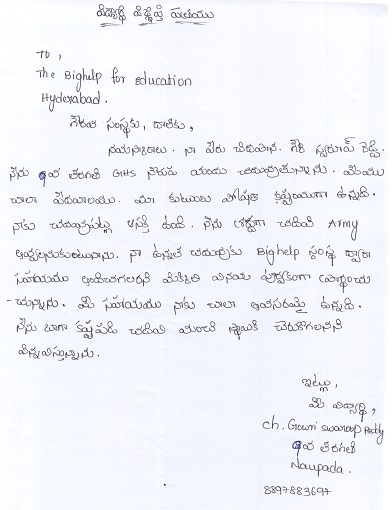 విద్యార్థి విజ్ఞప్తి పత్రము
To,
The Bighelp for education
Hyderabad.
గౌరవ సంస్థకు, దాతకు,
నమస్కారాలు. నా పేరు చిరునామా. గౌరి స్వరూప్ రెడ్డి.
నేను తరగతి GHS నౌపడ నందు చదువుతున్నాను. మేము
చాలా పేదవాలము. మా కుటుంబ పోషణ కష్టముగా ఉన్నది.
నాకు చదువుపట్ల ఆసక్తి ఉంది. నేను చదివి Army
అవ్వాలనుకుంటున్నాను. నా ఉన్నత చదువుకు Bighelp సంస్థ ద్వారా
సహాయము అందించగలరని వినయ పూర్వకంగా ప్రార్థించు
-చున్నాను. మీ సహాయము నాకు చాలా అవసరమై ఉన్నది.
నేను బాగా కష్టపడి చదివి మంచి స్థాయికి చేరుకోగలనని
విన్నవిస్తున్నాను.
ఇట్లు,
మీ విద్యార్థి,
ch. Gowri swaroop Reddy
తరగతి
Naupada.
8897883697